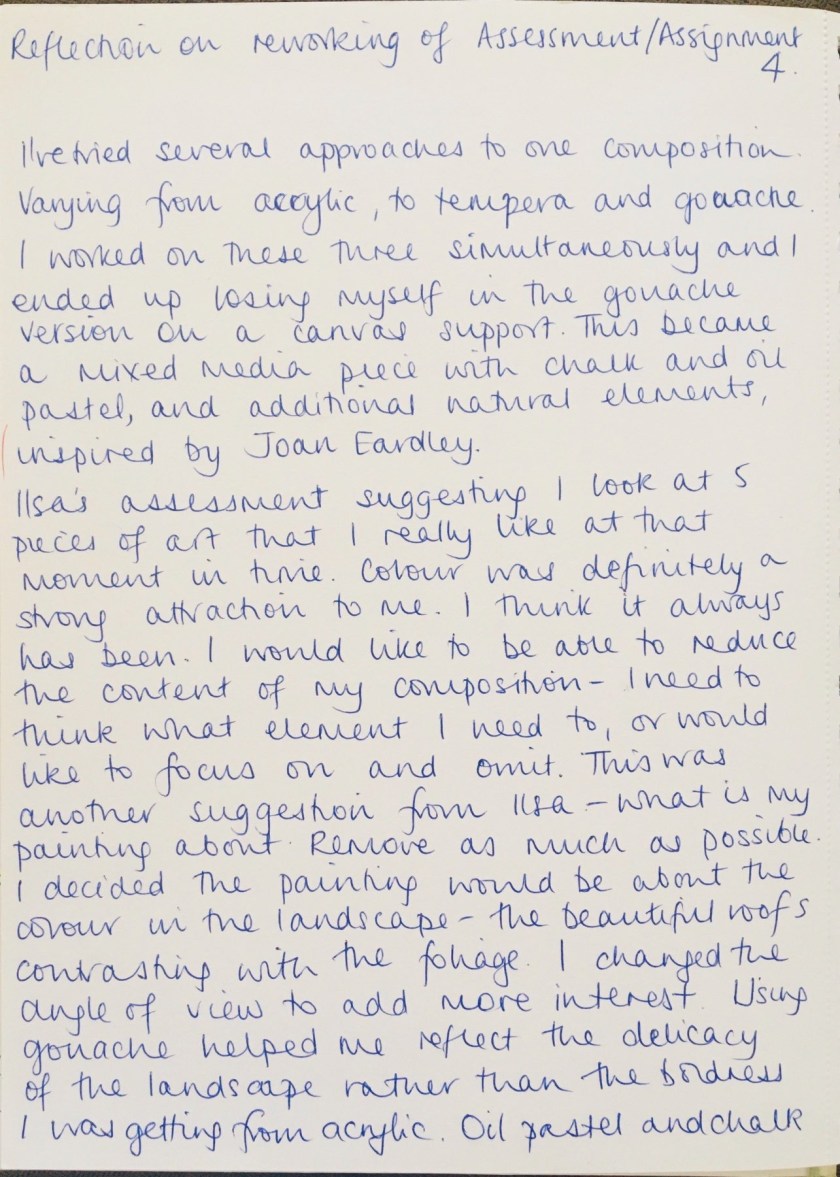 Reflection on reworking of Assessment/Assignment
4.
I've tried several approaches to one composition.
Varying from acrylic, to tempera and gouache.
I worked on these three simultaneously and I
ended up losing myself in the gouache
version on a canvas support. This became
a mixed media piece with chalk and oil
pastel, and additional natural elements,
inspired by Joan Eardley.
Ilsa's assessment suggesting I look at 5
pieces of art that I really like at that
moment in time. Colour was definitely a
strong attraction to me. I think it always
has been. I would like to be able to reduce
the content of my composition - I need to
think what element I need to, or would
like to focus on and omit. This was
another suggestion from Ilsa - what is my
painting about. Remove as much as possible.
I decided the painting would be about the
colour in the landscape - the beautiful roofs
contrasting with the foliage. I changed the
angle of view to add more interest. Using
gouache helped me reflect the delicacy
of the landscape rather than the boldness
I was getting from acrylic. Oil pastel and chalk